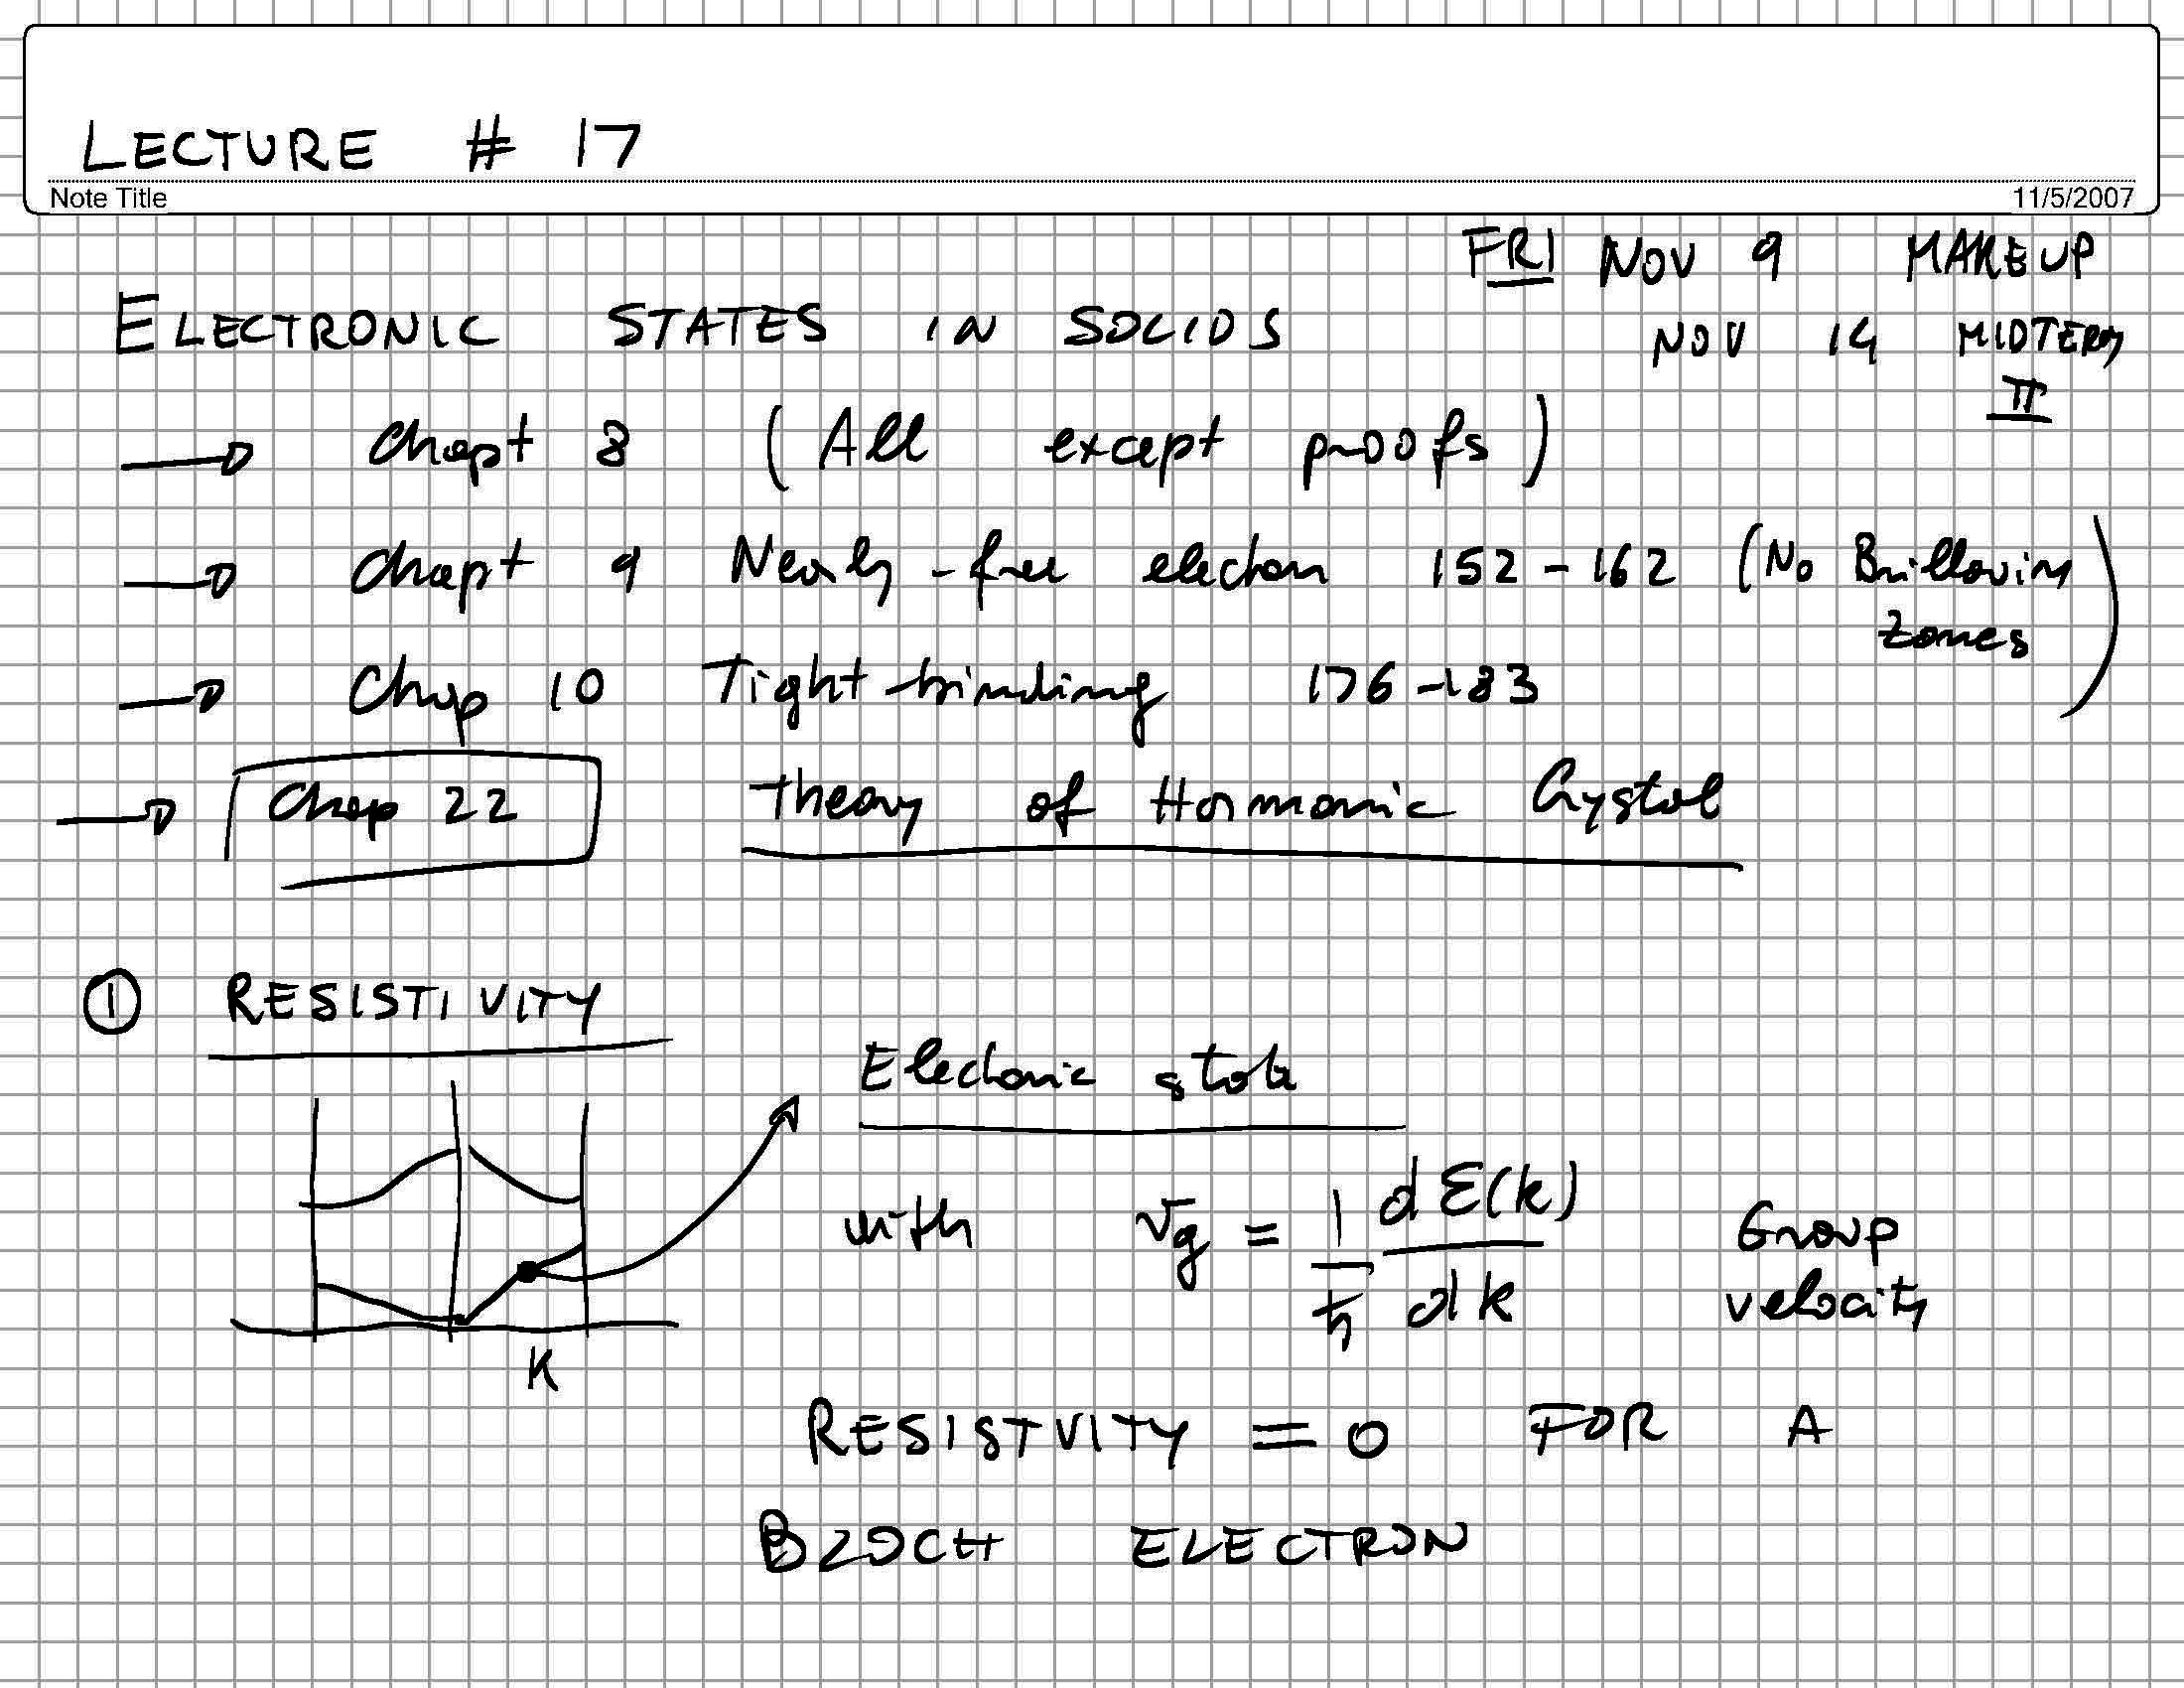 LECTURE # 17
Note Title 11/5/2007
FRI NOV 9 MAKEUP
ELECTRONIC STATES IN SOLIDS
NOV 14 MIDTERM
II
Chapt 8 (All except proofs)
Chapt 9 Nearly-free electron 152-162 (No Brillouin
zones)
Chap 10 Tight-binding 176-183
Chap 22 theory of Harmonic Crystal
1 RESISTIVITY
Electronic state
with vg = 1/ħ dE(k)/dk Group
velocity
K
RESISTVITY = 0 FOR A
BLOCH ELECTRON